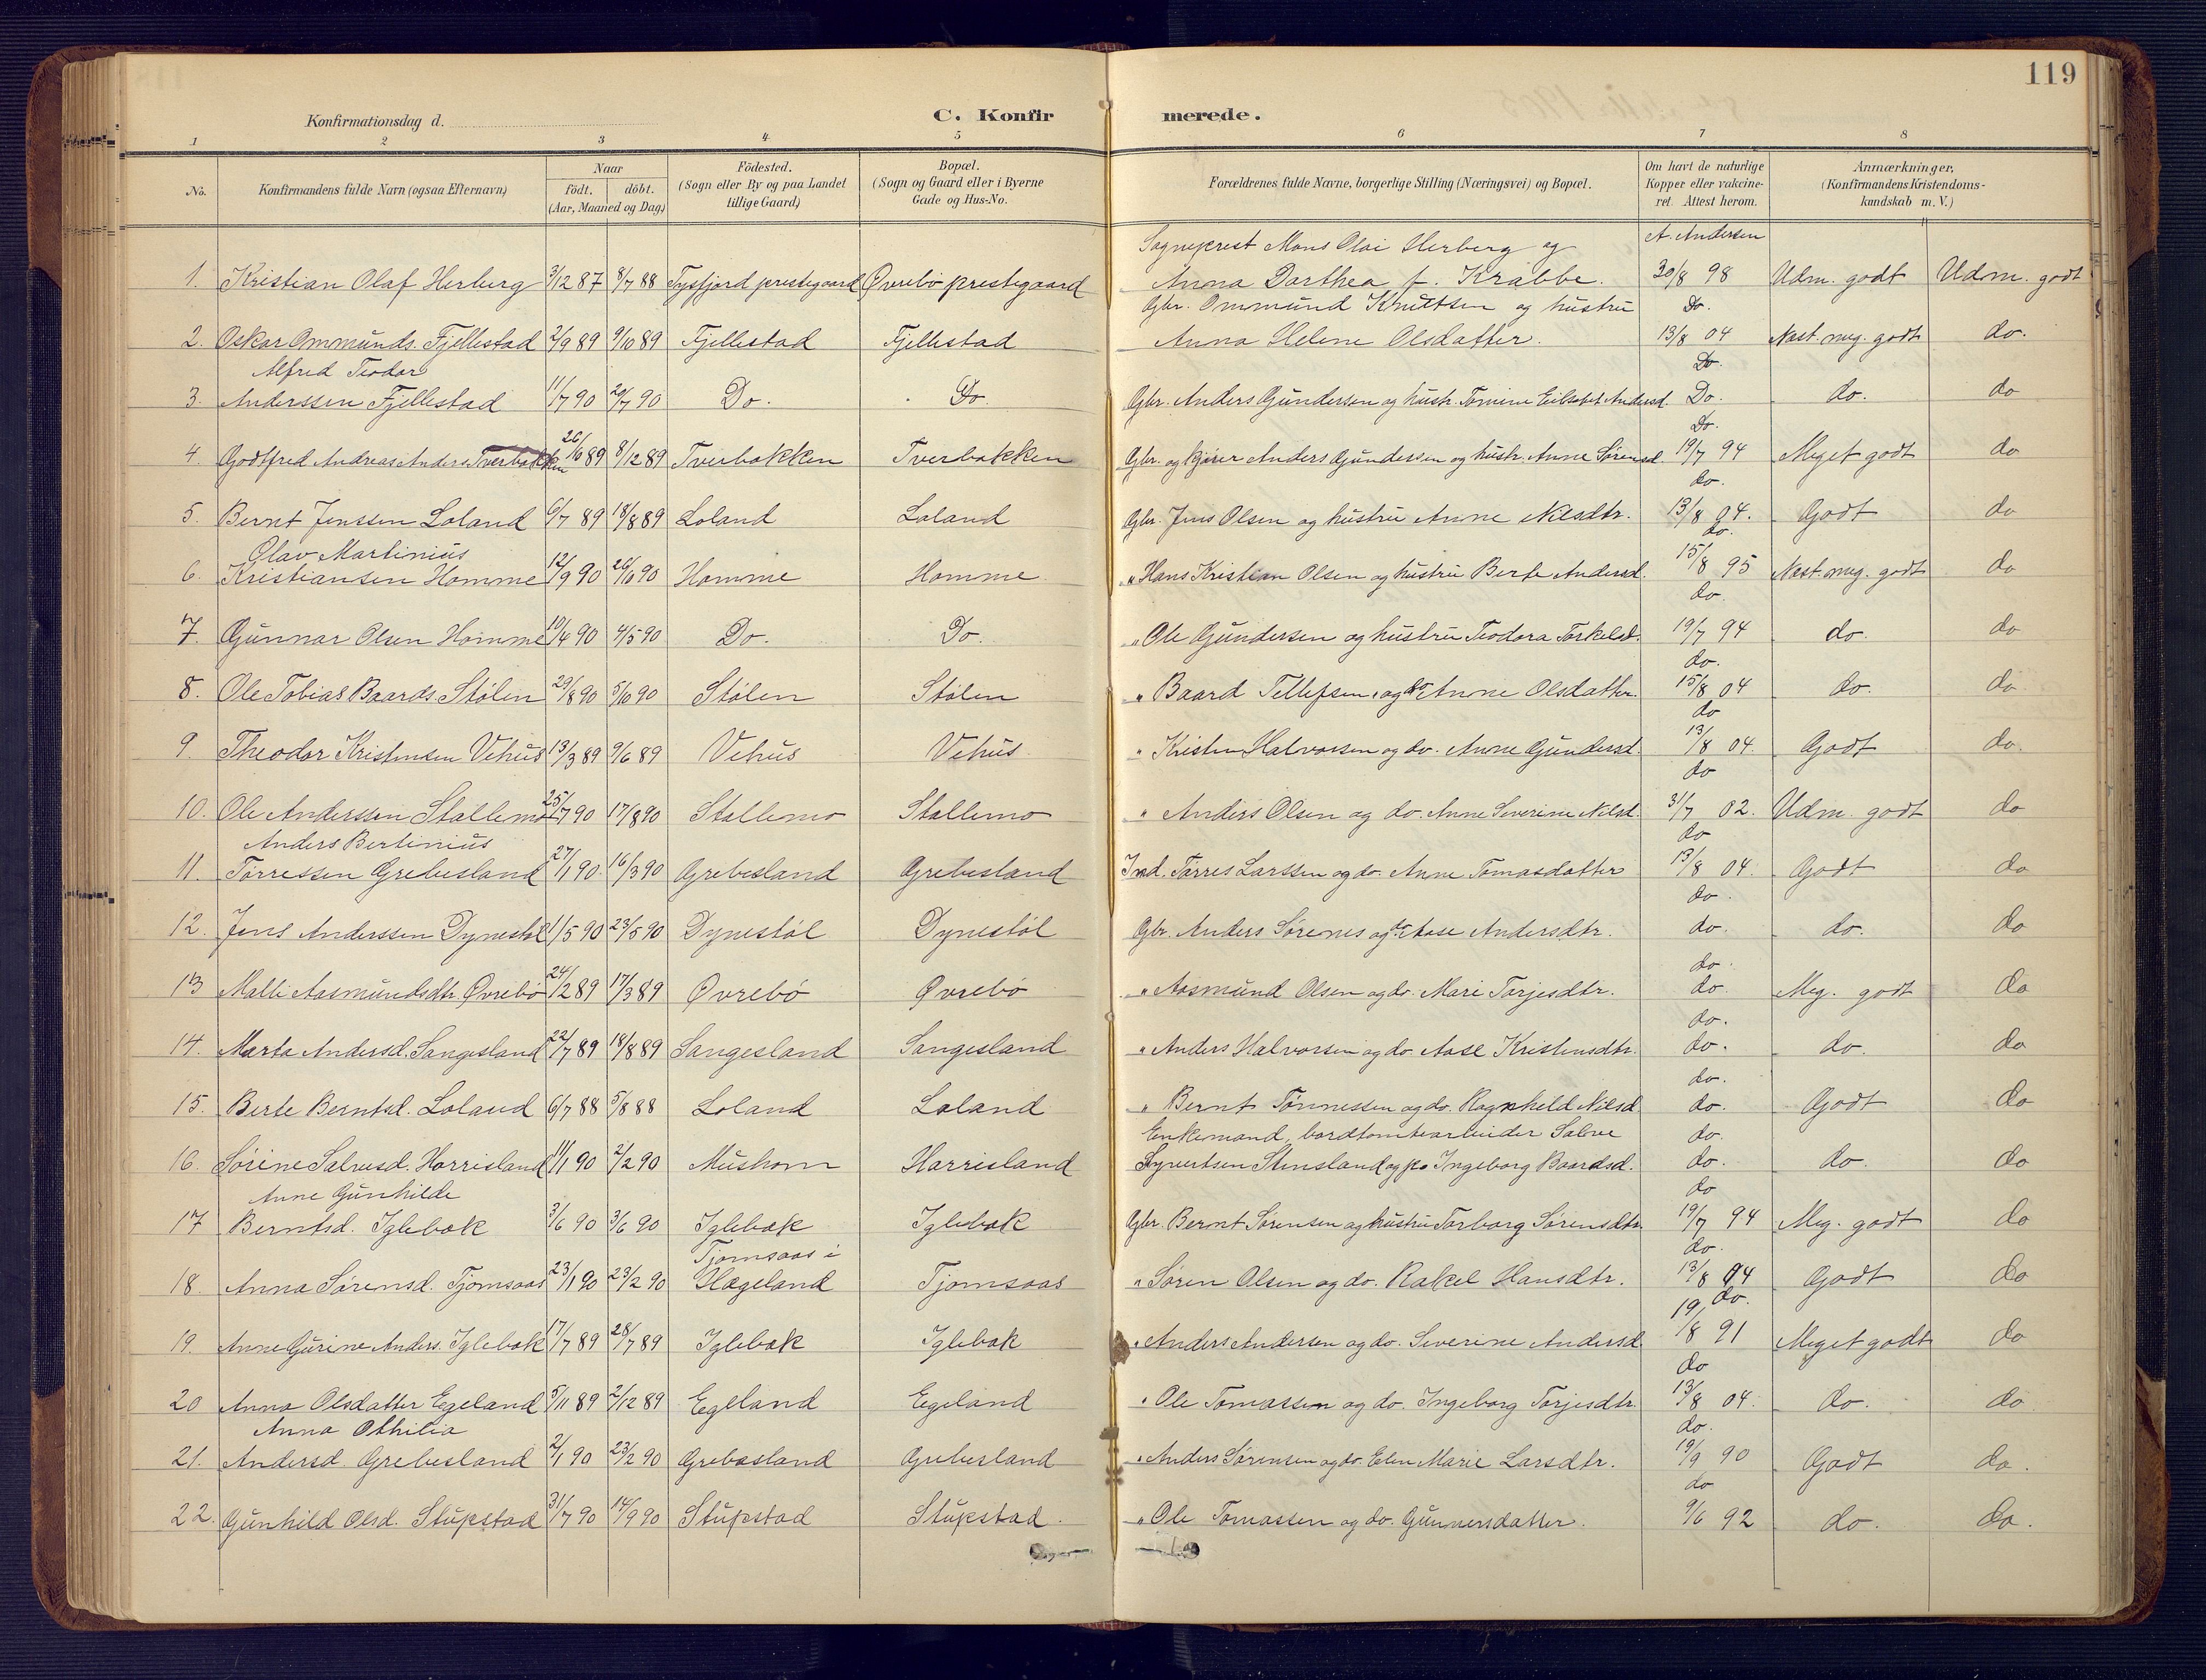 119
Konfirmationsdag d.
C. Konfirmerede.
1 2 3 4 5 6 7 8
No.
Konfirmandens fulde Navn (ogsaa Efternavn)
Naar
födt. döbt.
(Aar, Maaned og Dag)
Födested.
(Sogn eller By og paa Landet
tillige Gaard)
Bopæl.
(Sogn og Gaard eller i Byerne
Gade og Hus-No.
Forældrenes fulde Navne, borgerlige Stilling (Næringsvei) og Bopæl.
Om havt de naturlige
Kopper eller vakcine-
ret. Attest herom.
Anmærkninger,
(Konfirmandens Kristendoms-
kundskab m. V.)
Sogneprest Mons Olai Herberg og A. Andersen
1. Kristian Olaf Herberg 3/12 87 8/7 88 Tysfjord prestegaard Øvrebö prestegaard Anna Dorthea f. Krabbe. 30/8 98 Udm. godt Udm. godt
Gbr. Ommund Knutsen og hustru Do.
2. Oskar Ommunds. Fjellestad 2/9 89 9/10 89 Fjellestad Fjellestad Anna Helene Olsdatter. 13/8 04 Nast. meg. godt do.
Alfred Teodor Do.
3. Anderssen Fjellestad 11/7 90 20/7 90 Do. Do. Gbr. Anders Gundersen og hustr. Tomine Eilsebet Andersd. Do. do. do
Do.
4. Godtfred Andreas Anders Tverbakken 26/10 89 8/12 89 Tverbakken Tverbakken Gbr. og kjører Anders Gundersen og hustr. Anne Sørensd. 19/7 94 Meget godt do
do.
5. Bernt Jenssen Loland 6/7 89 18/8 89 Loland Loland Gbr. Jens Olsen og hustru Anne Nilsdtr. 13/8 04. Godt do
Olav Martinius do.
6. Kristiansen Homme 12/9 90 26/10 90 Homme Homme " Hans Kristian Olsen og hustru Berte Andersd. 15/8 95 Nast. meg. godt do
do.
7. Gunnar Olsen Homme 10/4 90 4/5 90 Do. Do. " Ole Gundersen og hustru Teodora Torkelsd. 19/7 94 do. do
do.
8. Ole Tobias Baards. Stølen 29/8 90 5/10 90 Stølen Stølen " Baard Tellefsen og do Anne Olsdatter. 15/8 04 do. do
do
9. Theodor Kristensen Vehus 13/3 89 9/6 89 Vehus Vehus " Kristen Halvorsen og do. Anne Gundersd. 13/8 04. Godt do.
do
10. Ole Anderssen Stallemo 25/7 90 17/8 90 Stallemo Stallemo " Anders Olsen og do. Anne Severine Nilsd. 31/7 02. Udm. godt do
Anders Bertinius do
11. Tørressen Grebesland 27/1 90 16/3 90 Grebesland Grebesland Ind. Tørres Larssen og do. Anne Tomasdatter 13/8 04. Godt do
do.
12. Jens Anderssen Dynestøl 11/5 90 23/5 90 Dynestøl Dynestøl Gbr. Anders Sørenes og do Aase Andersdtr. do. do. do
do.
13 Malli Aasmundsdtr. Øvrebö 24/2 89 17/3 89 Øvrebö Øvrebö " Aasmund Olsen og do. Mari Torjesdtr. do. Meg. godt do
do.
14. Marta Andersd. Sangesland 22/7 89 18/8 89 Sangesland Sangesland " Anders Halvorsen og do. Aase Kristensdtr. do. do. do
do.
15. Berte Berntsd. Loland 6/7 88 5/8 88 Loland Loland " Bernt Tønnessen og do. Ragnhild Nilsd. do. Godt do
Enkemand, bordtomtearbeider Salve do.
16. Sørine Salvesd. Harrisland 11/1 90 2/2 90 Mushom Harrisland Syvertsen Stensland og f. Ingeborg Baardsd. do. do. do
Anne Gunhilde do
17 Berntsd. Iglebæk 3/6 90 3/6 90 Iglebæk Iglebæk Gbr. Bernt Sørensen og hustru Torborg Sørensdtr. 19/7 94 Meg. godt do
Tjomsaas i do.
18. Anna Sørensd. Tjomsaas 23/1 90 23/2 90 Hægeland Tjomsaas " Søren Olsen og do. Rakel Hansdtr. 13/8 04 Godt do
do.
19. Anne Gurine Anders. Iglebæk 17/7 89 28/7 89 Iglebæk Iglebæk " Anders Andersen og do. Severine Andersd. 19/8 91 Meget godt do
do
20 Anna Olsdatter Egeland 5/11 89 2/12 89 Egeland Egeland " Ole Tomassen og do. Ingeborg Torjesdtr. 13/8 04. do. do
Anna Othilia do.
21. Andersd Grebesland 2/1 90 23/2 90 Grebesland Grebesland " Anders Sørensen og do. Elen Marie Larsdtr. 19/9 90 Godt do.
do
22. Gunhild Olsd. Stupstad 31/7 90 14/9 90 Stupstad Stupstad. " Ole Tomassen og do. Gunnersdatter. 9/6 92 do. do.